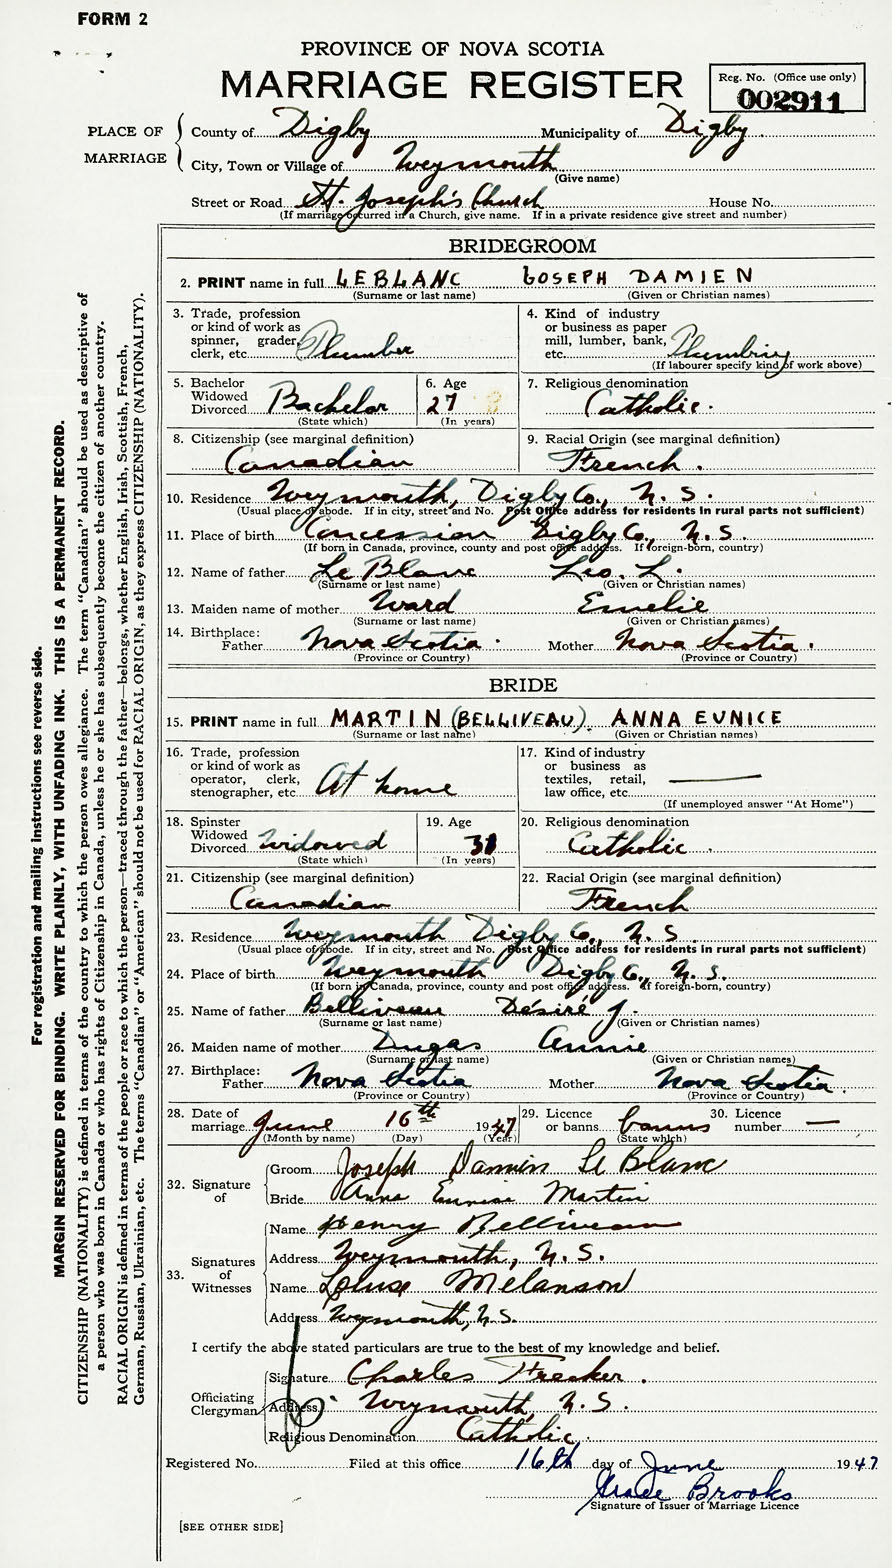 FORM 2
PROVINCE OF NOVA SCOTIA
MARRIAGE REGISTER
Reg. No. (Office use only)
002911
PLACE OF MARRIAGE
County of Digby Municipality of Digby.
City, Town or Village of Weymouth
(Give name)
Street or Road St. Joseph's Church House No.
(If marriage occurred in a Church, give name. If in a private residence give street and number)
BRIDEGROOM
2. PRINT name in full LEBLANC JOSEPH DAMIEN
(Surname or last name) (Given or Christian names)
3. Trade, profession or kind of work as spinner, grader, clerk, etc. Plumber
4. Kind of industry or business as paper mill, lumber, bank, etc. Plumbing
(If labourer specify kind of work above)
5. Bachelor Widowed Divorced Bachelor
(State which)
6. Age 27
(In years)
7. Religious denomination Catholic.
8. Citizenship (see marginal definition) Canadian
9. Racial Origin (see marginal definition) French.
10. Residence Weymouth, Digby Co., N. S.
(Usual place of abode. If in city, street and No. Post Office address for residents in rural parts not sufficient)
11. Place of birth Concession Digby Co., N. S.
(If born in Canada, province, county and post office address. If foreign-born, country)
12. Name of father Le Blanc Leo. L.
(Surname or last name) (Given or Christian names)
13. Maiden name of mother Ward Emelie
(Surname or last name) (Given or Christian names)
14. Birthplace: Father Nova Scotia. Mother Nova Scotia.
(Province or Country) (Province or Country)
BRIDE
15. PRINT name in full MARTIN (BELLIVEAU). ANNA EUNICE
(Surname or last name) (Given or Christian names)
16. Trade, profession or kind of work as operator, clerk, stenographer, etc. At home
17. Kind of industry or business as textiles, retail, law office, etc. —
(If unemployed answer "At Home")
18. Spinster Widowed Divorced Widowed
(State which)
19. Age 31
(In years)
20. Religious denomination Catholic.
21. Citizenship (see marginal definition) Canadian
22. Racial Origin (see marginal definition) French
23. Residence Weymouth Digby Co., N. S.
(Usual place of abode. If in city, street and No. Post Office address for residents in rural parts not sufficient)
24. Place of birth Weymouth Digby Co., N. S.
(If born in Canada, province, county and post office address. If foreign-born, country)
25. Name of father Belliveau Désiré J.
(Surname or last name) (Given or Christian names)
26. Maiden name of mother Dugas Annie
(Surname or last name) (Given or Christian names)
27. Birthplace: Father Nova Scotia Mother Nova Scotia.
(Province or Country) (Province or Country)
28. Date of marriage June 16th 1947
(Month by name) (Day) (Year)
29. Licence or banns banns
(State which)
30. Licence number —
32. Signature of
Groom Joseph Damien Le Blanc
Bride Anna Eunice Martin
33. Signatures of Witnesses
Name Henry Belliveau
Address Weymouth, N. S.
Name Louise Melanson
Address Weymouth, N.S.
I certify the above stated particulars are true to the best of my knowledge and belief.
Officiating Clergyman
Signature Charles Frecker.
Address Weymouth, N. S.
Religious Denomination Catholic.
Registered No. Filed at this office 16th day of June 1947
Grace Brooks
Signature of Issuer of Marriage Licence
[SEE OTHER SIDE]
For registration and mailing instructions see reverse side.
MARGIN RESERVED FOR BINDING. WRITE PLAINLY, WITH UNFADING INK. THIS IS A PERMANENT RECORD.
CITIZENSHIP (NATIONALITY) is defined in terms of the country to which the person owes allegiance. The term "Canadian" should be used as descriptive of
a person who was born in Canada or who has rights of Citizenship in Canada, unless he or she has subsequently become the citizen of another country.
RACIAL ORIGIN is defined in terms of the people or race to which the person—traced through the father—belongs, whether English, Irish, Scottish, French,
German, Russian, Ukrainian, etc. The terms "Canadian" or "American" should not be used for RACIAL ORIGIN, as they express CITIZENSHIP (NATIONALITY).